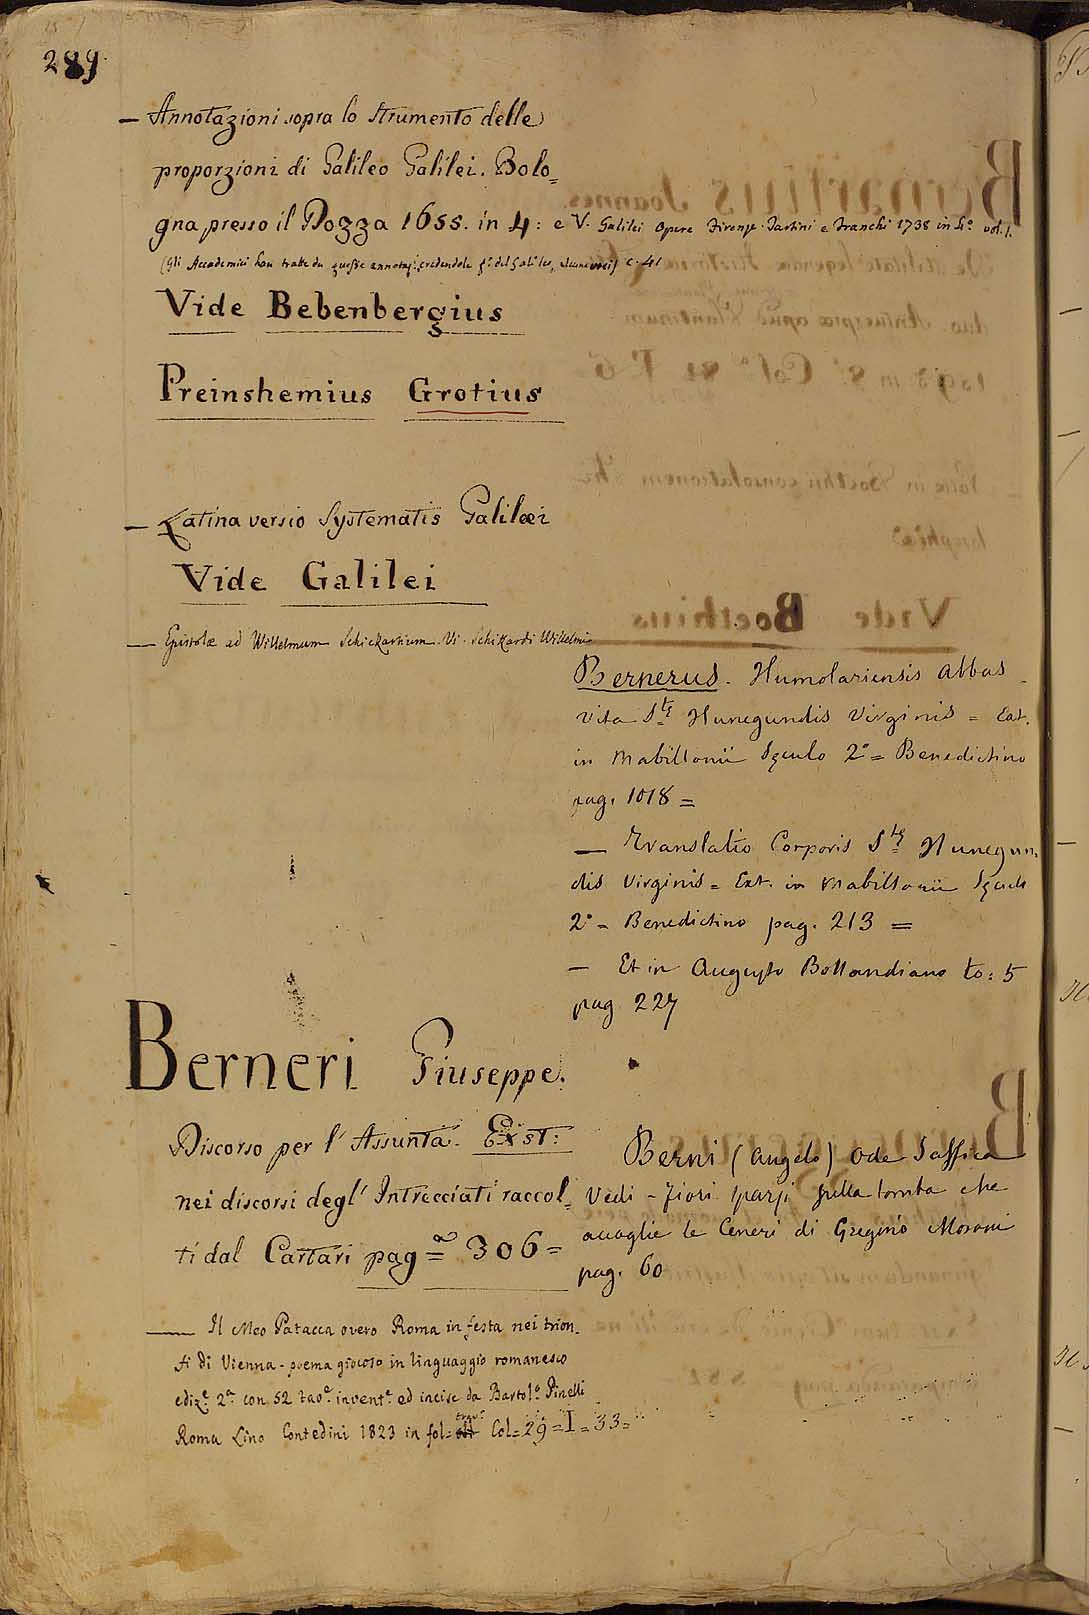 289
— Annotazioni sopra lo strumento delle
proporzioni di Galileo Galilei. Bolo=
gna presso il Dozza 1655. in 4: e V. Galilei Opere Firenze Tartini e Franchi 1738 in 4.º vol. 1.
(Gli Accademici han tratte da queste annotaz. credendole del Galileo, alcune voci) c. 41
Vide Bebenbergius
Preinshemius Grotius
— Latina versio Systematis Galilæi
Vide Galilei
— Epistolæ ad Willelmum Schickartum. Vi. Schikardi Willelmi
Bernerus. Humolariensis Abbas
vita S.tę Hunegundis Virginis = Ext.
in Mabillonii Sęculo 2º = Benedictino
pag. 1018 =
— Translatio Corporis S.tę Hunegun
dis Virginis = Ext. in Mabillonii Sęculo
2º = Benedictino pag. 213 =
— Et in Augusto Bollandiano to: 5
pag 227
Berneri Giuseppe.
Discorso per l' Assunta. Exst:
nei discorsi degl' Intrecciati raccol=
ti dal Cartari pag=ª 306=
— Il Meo Patacca overo Roma in festa nei trion=
fi di Vienna - poema giocoso in linguaggio romanesco
ediz.e 2.ª con 52 tav.e invent.e ed incise da Bartol.º Pinelli
Roma Lino Contedini 1823 in fol= trav. Col=29=I=33=
Berni (Angelo) Ode Saffica
Vedi - Fiori sparsi sulla tomba che
accoglie le Ceneri di Gregorio Moroni
pag. 60